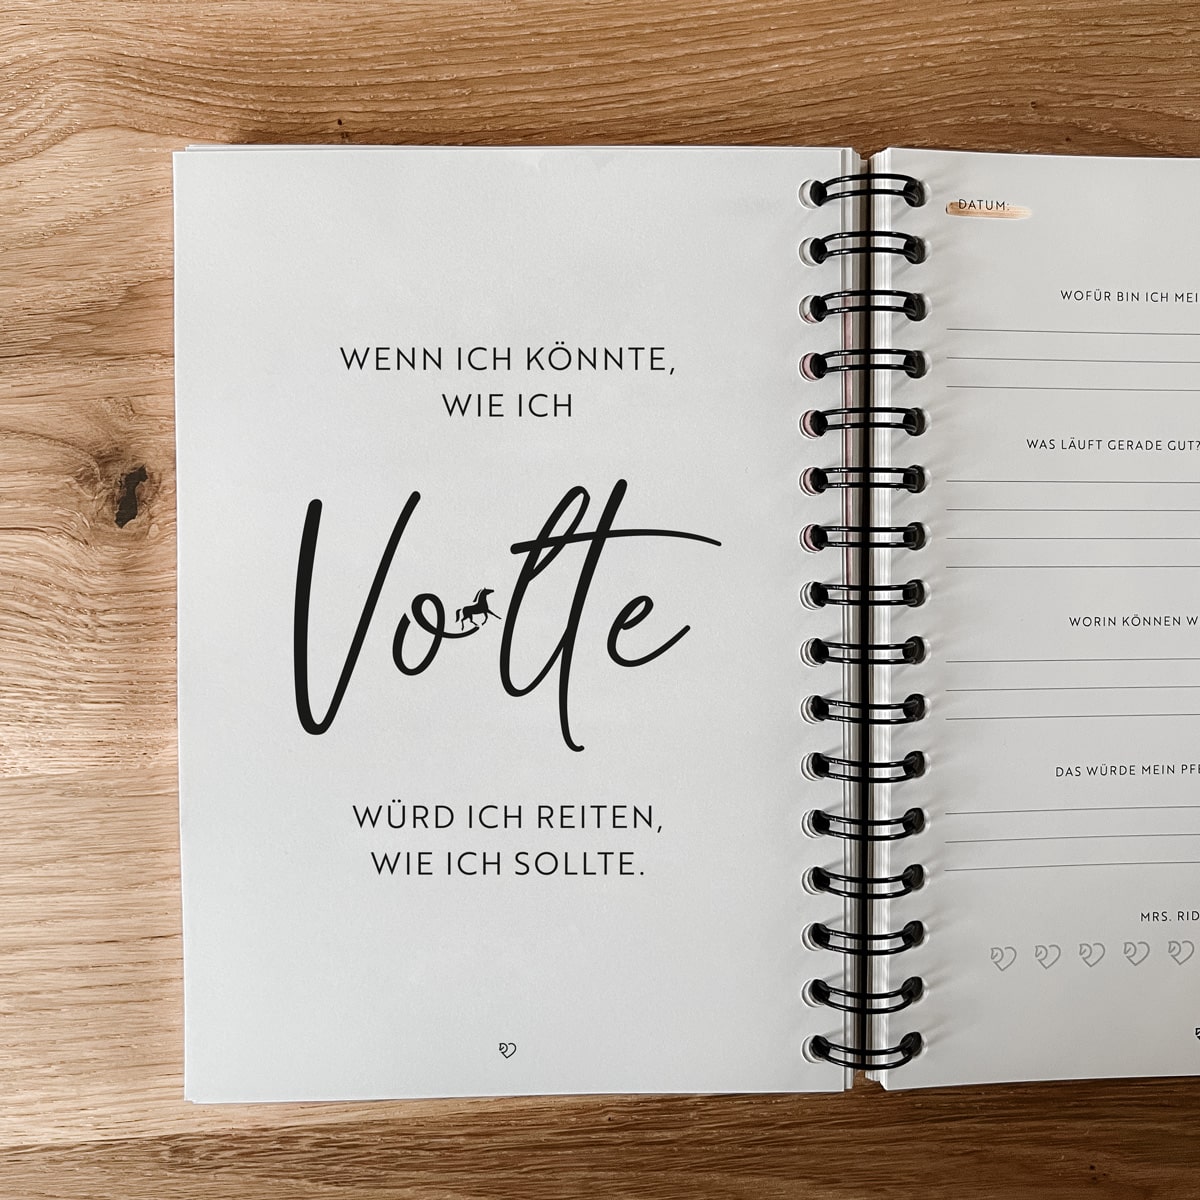 WENN ICH KÖNNTE,
WIE ICH
Volte
WÜRD ICH REITEN,
WIE ICH SOLLTE.
DATUM:
WOFÜR BIN ICH
WAS LÄUFT GERADE GUT?
WORIN KÖNNEN
DAS WÜRDE MEIN
MRS.